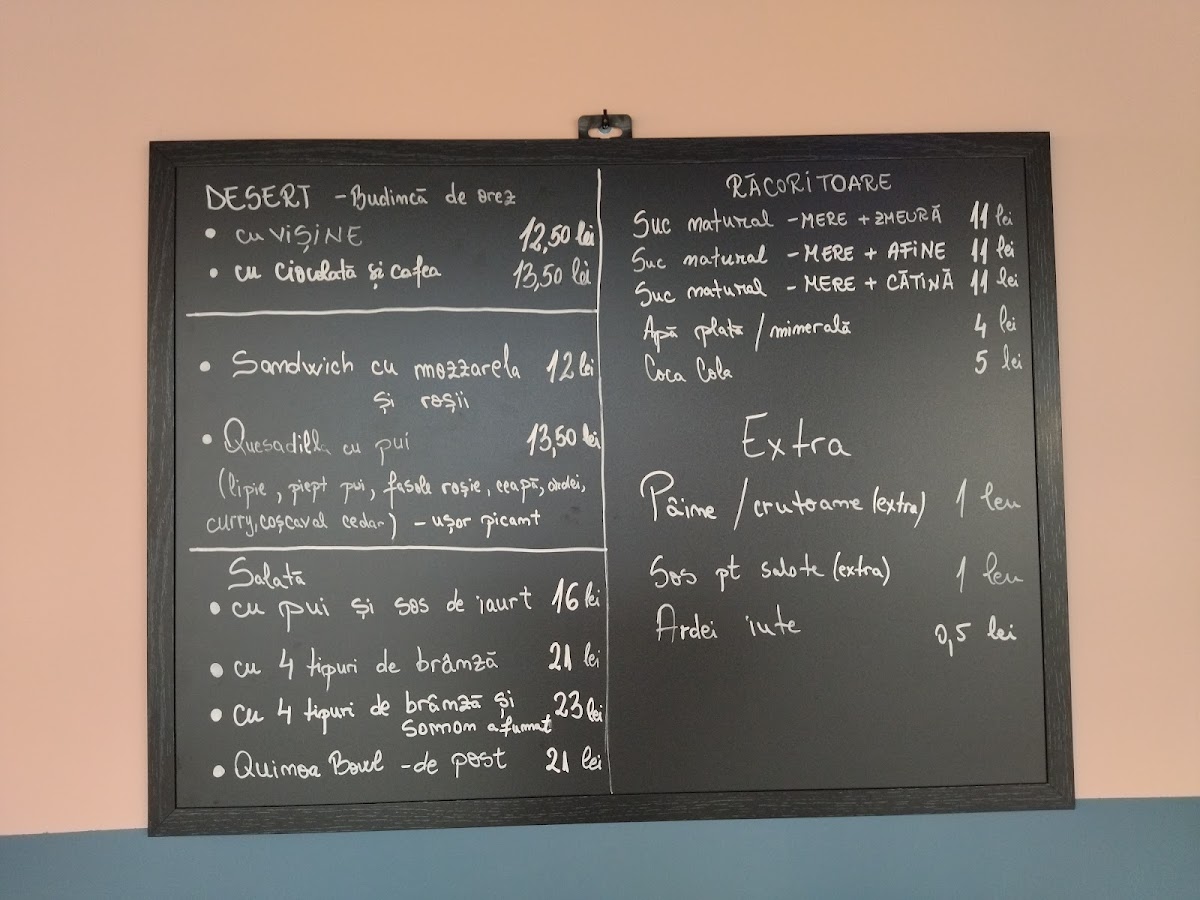 DESERT - Budincă de orez
• cu VIȘINE 12,50 lei
• cu ciocolată și cafea 13,50 lei
• Sandwich cu mozzarela 12 lei
și roșii
• Quesadilla cu pui 13,50 lei
(lipie, piept pui, fasole roșie, ceapă, ardei,
curry, cașcaval cedar) - ușor picant
Salată
• cu pui și sos de iaurt 16 lei
• cu 4 tipuri de brânză 21 lei
• cu 4 tipuri de brânză și 23 lei
somon afumat
• Quinoa Bowl - de post 21 lei
RĂCORITOARE
Suc natural - MERE + ZMEURĂ 11 lei
Suc natural - MERE + AFINE 11 lei
Suc natural - MERE + CĂTINĂ 11 lei
Apă plată / minerală 4 lei
Coca Cola 5 lei
Extra
Pâine / crutoane (extra) 1 leu
Sos pt salate (extra) 1 leu
Ardei iute 0,5 lei